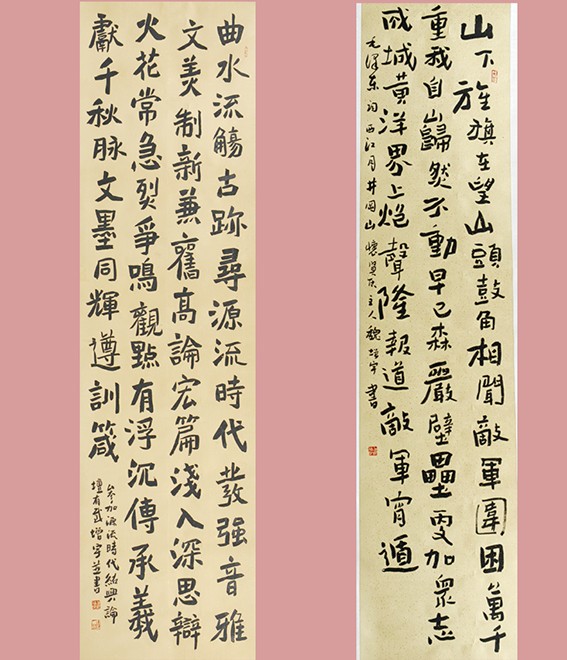 曲水流觴古跡尋源流時代發强音雅
文美制新兼舊高論宏篇淺入深思辯
火花常急烈爭鳴觀點有浮沉傳承義
獻千秋脉文墨同輝遵訓箴
參加源流時代紹興論
壇有感增宇並書
山下旌旗在望山頭鼓角相聞敵軍圍困萬千
重我自巋然不動早已森嚴壁壘更加衆志
成城黃洋界上炮聲隆報道敵軍宵遁
毛澤東詞西江月井岡山懷主人魏增宇書